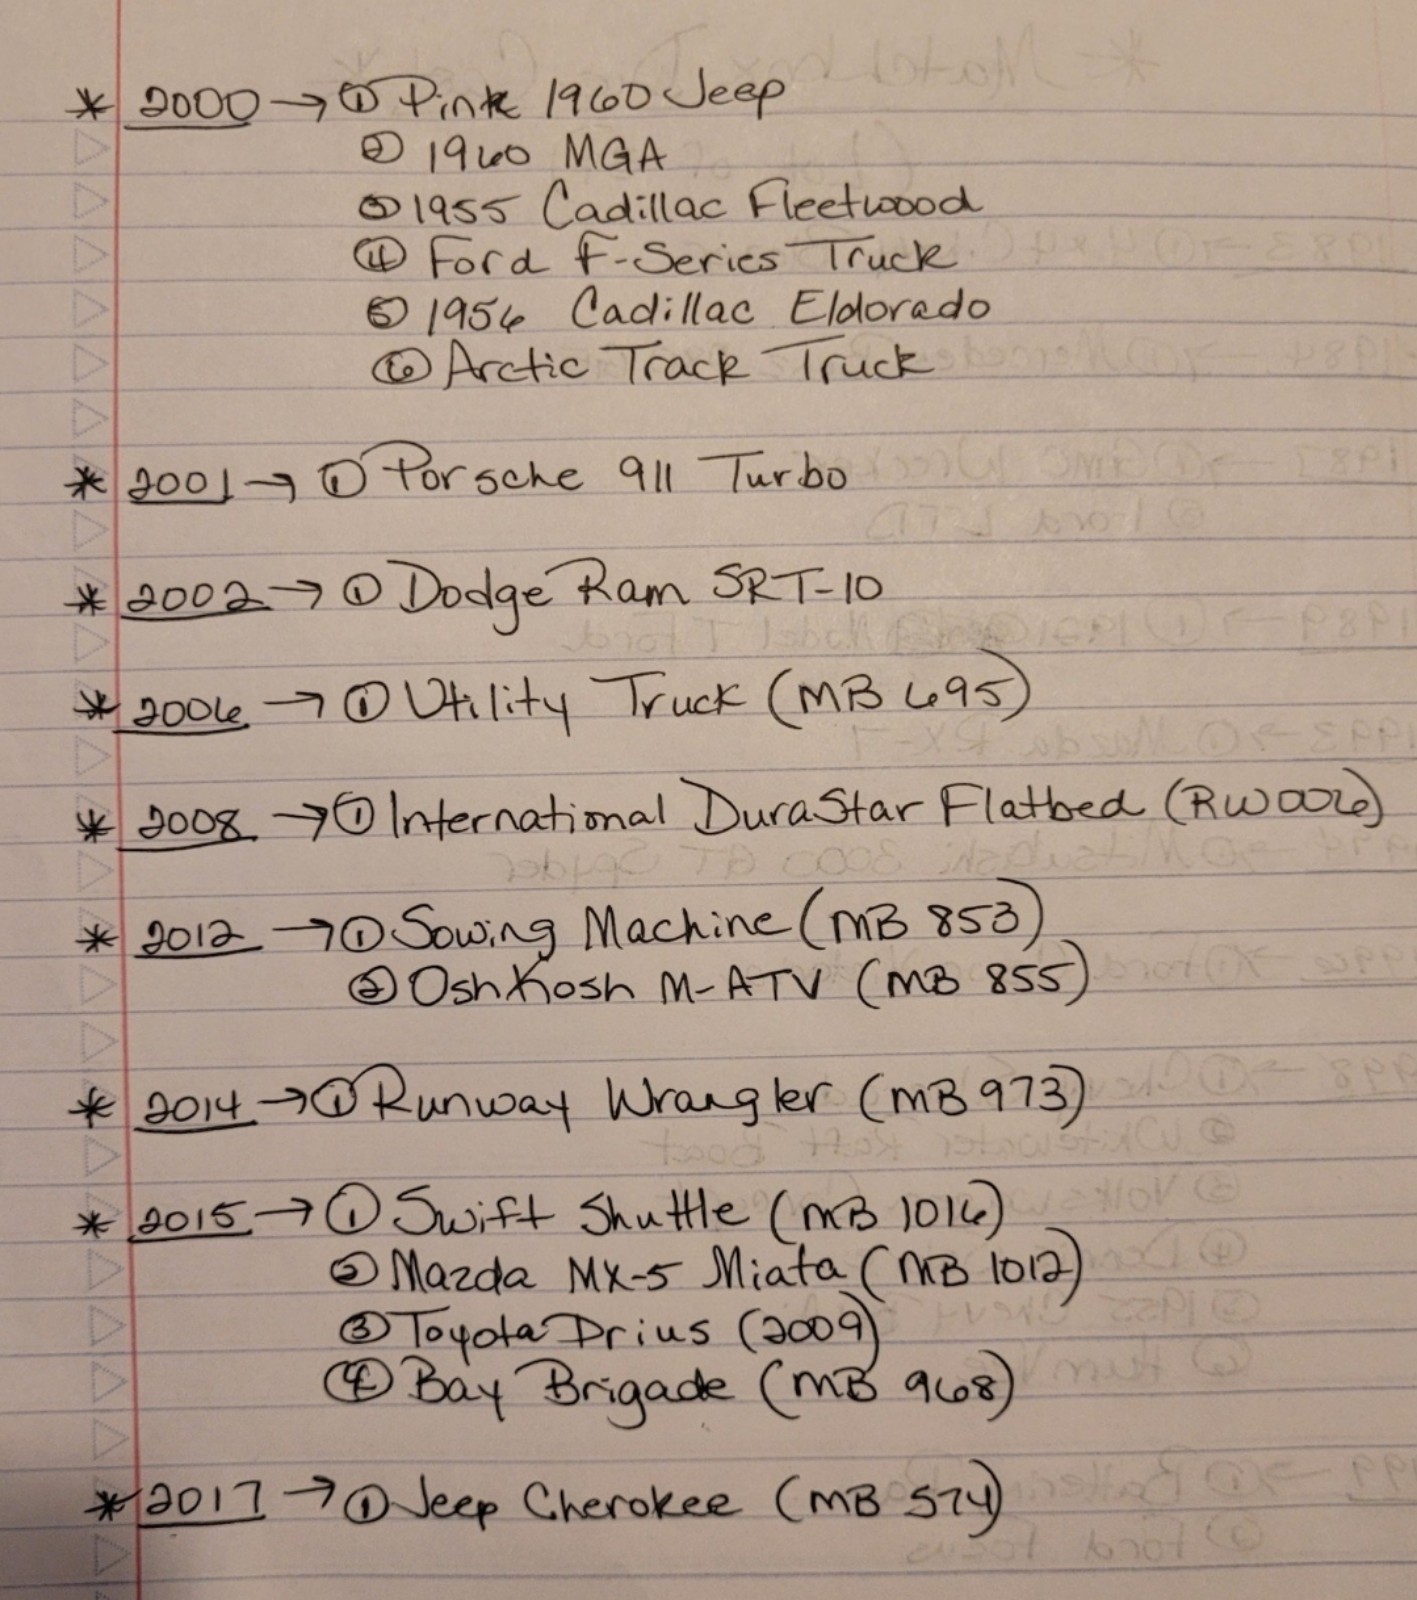 * 2000 → ① Pink 1960 Jeep
② 1960 MGA
③ 1955 Cadillac Fleetwood
④ Ford F-Series Truck
⑤ 1956 Cadillac Eldorado
⑥ Arctic Track Truck
* 2001 → ① Porsche 911 Turbo
* 2002 → ① Dodge Ram SRT-10
* 2006 → ① Utility Truck (MB 695)
* 2008 → ① International DuraStar Flatbed (RW006)
* 2012 → ① Sowing Machine (MB 853)
② OshKosh M-ATV (MB 855)
* 2014 → ① Runway Wrangler (MB 973)
* 2015 → ① Swift Shuttle (MB 1016)
② Mazda MX-5 Miata (MB 1012)
③ Toyota Prius (2009)
④ Bay Brigade (MB 968)
* 2017 → ① Jeep Cherokee (MB 574)